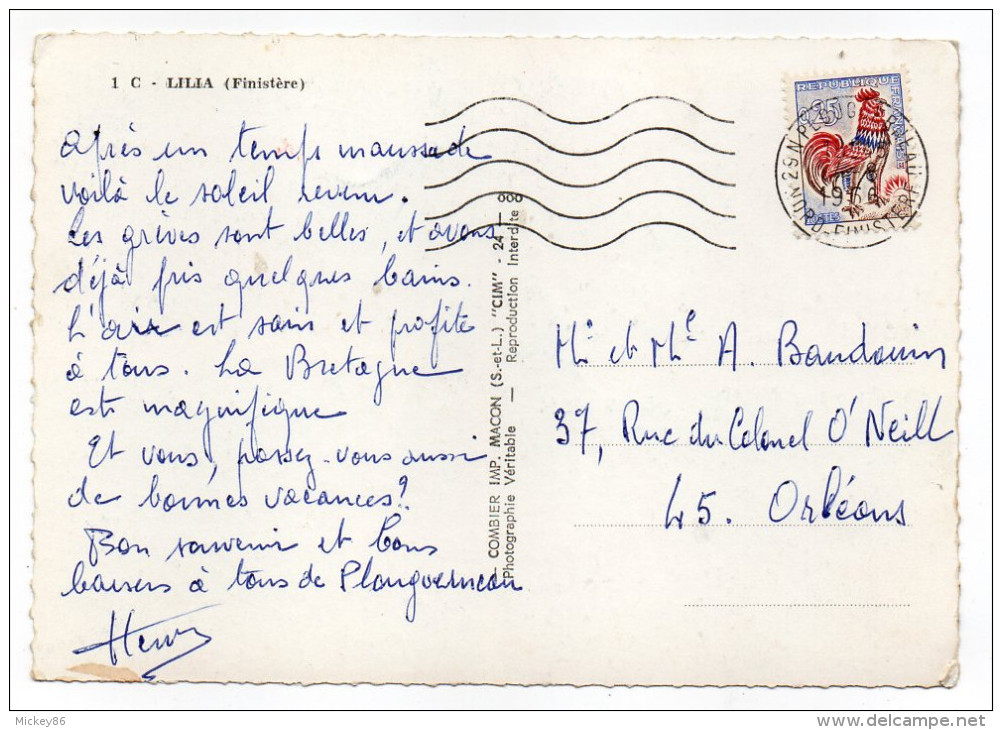 1 C - LILIA (Finistère)
Après un temps maussade
voilà le soleil revenu.
Les grèves sont belles, et avons
déjà pris quelques bains.
L'air est sain et profite
à tous. La Bretagne
est magnifique
Et vous, passez-vous aussi
de bonnes vacances?
Bon souvenir et bons
baisers à tous de Plouguerneau
Henri
COMBIER IMP. MACON (S.-et-L.) "CIM" - 24 -
Photographie Véritable — Reproduction Interdite
REPUBLIQUE FRANÇAISE
0,25
POSTES
1966
NORD-FINISTERE
Mr et Me A. Baudouin
37, Rue du Colonel O'Neill
45. Orléans
Mickey86
www.delcampe.net